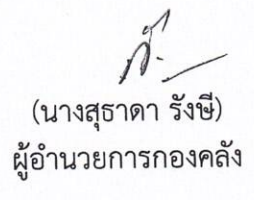 (นางสุธาดา รังษี)
ผู้อำนวยการกองคลัง